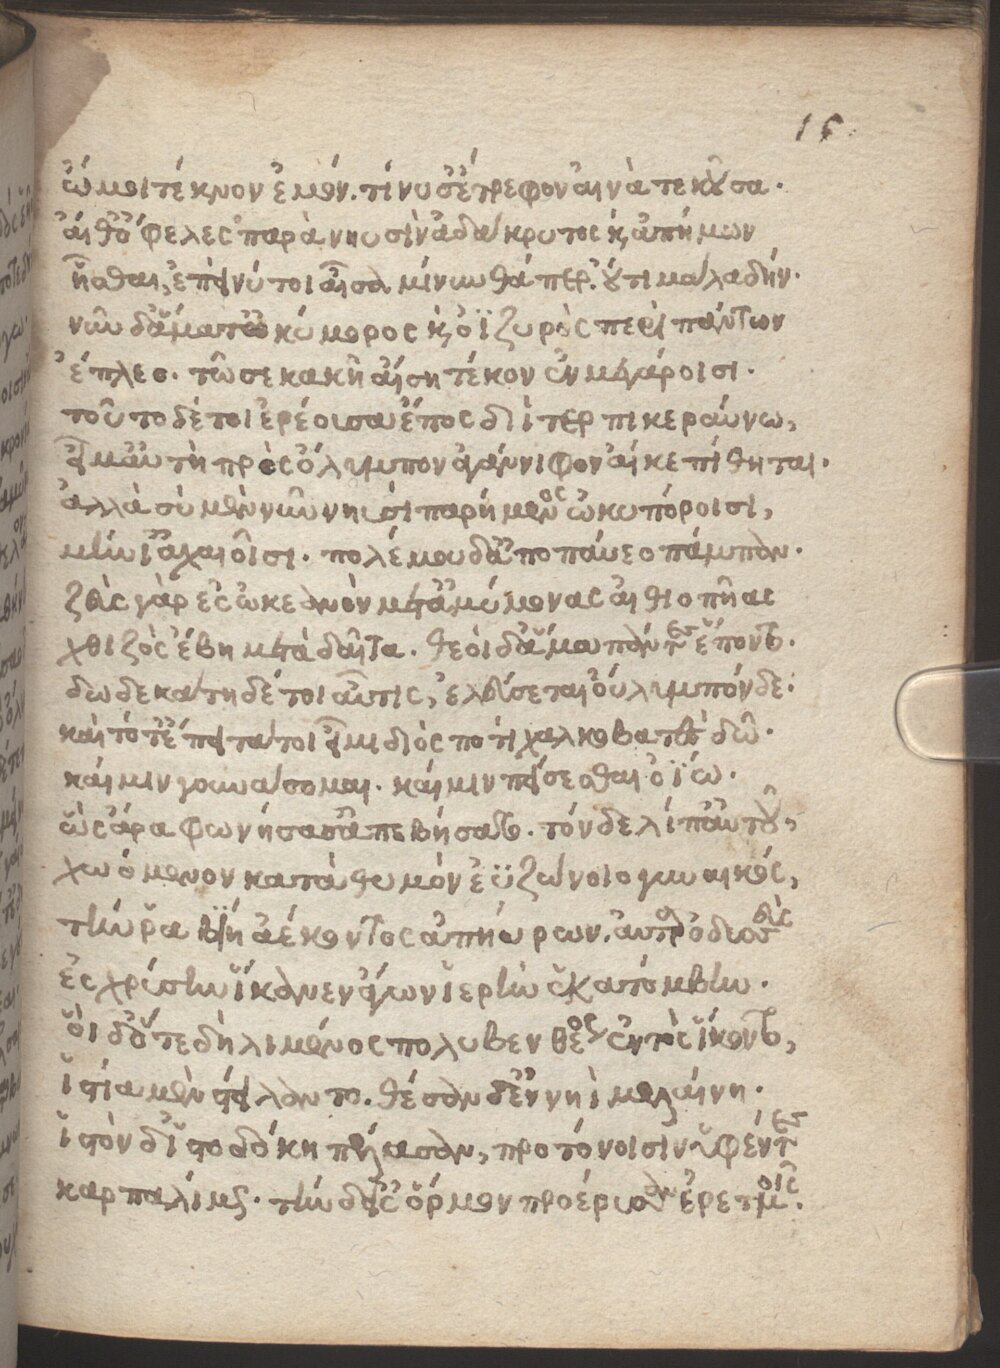 16.
ὤμοι τέκνον ἐμόν. τί νυ σ' ἔτρεφον αἰνὰ τεκοῦσα.
αἴθ' ὄφελες παρὰ νηυσὶν ἀδάκρυτος κ ἀπήμων
ἧσθαι, ἐπεί νύ τοι αἶσα μίνυνθά περ. οὔτι μάλα δήν.
νῦν δ' ἅμα τ' ὠκύμορος κ ὀϊζυρὸς περὶ πάντων
ἔπλεο. τῶ σε κακῆ αἴση τέκον ἐν μεγάροισι.
τοῦτο δέ τοι ἐρέουσα ἔπος διῒ τερπικεραύνω,
εἶμ' αὐτὴ πρὸς ὄλυμπον ἀγάννιφον αἴ κε πίθηται.
ἀλλὰ σὺ μὲν νῦν νηυσὶ παρήμενος ὠκυπόροισι,
μήνι' ἀχαιοῖσι. πολέμου δ' ἀποπαύεο πάμπαν.
ζεὺς γὰρ ἐς ὠκεανὸν μετ' ἀμύμονας αἰθιοπῆας
χθιζὸς ἔβη μετὰ δαῖτα. θεοὶ δ' ἅμα πάντες ἕποντο.
δωδεκάτη δέ τοι αὖτις, ἐλεύσεται οὔλυμπόνδε.
καὶ τότ' ἔπειτά τοι εἶμι διὸς ποτὶ χαλκοβατὲς δῶ.
καί μιν γουνάσομαι. καί μιν πείσεσθαι ὀΐω.
ὣς ἄρα φωνήσασ' ἀπεβήσατο. τὸν δὲ λίπ' αὐτοῦ,
χωόμενον κατὰ θυμὸν ἐϋζώνοιο γυναικός,
τήν ῥα βίη ἀέκοντος ἀπηύρων. αὐτὰρ ὀδυσσεὺς
ἐς χρύσην ἵκανεν ἄγων ἱερὴν ἑκατόμβην.
οἱ δ' ὅτε δὴ λιμένος πολυβενθέος ἐντὸς ἵκοντο,
ἱστία μὲν στείλαντο. θέσαν δ' ἐν νηῒ μελαίνη.
ἱστὸν δ' ἱστοδόκη πέλασαν, προτόνοισιν ὑφέντες
καρπαλίμως. τὴν δ' εἰς ὅρμον προέρυσαν ἐρετμοῖς.